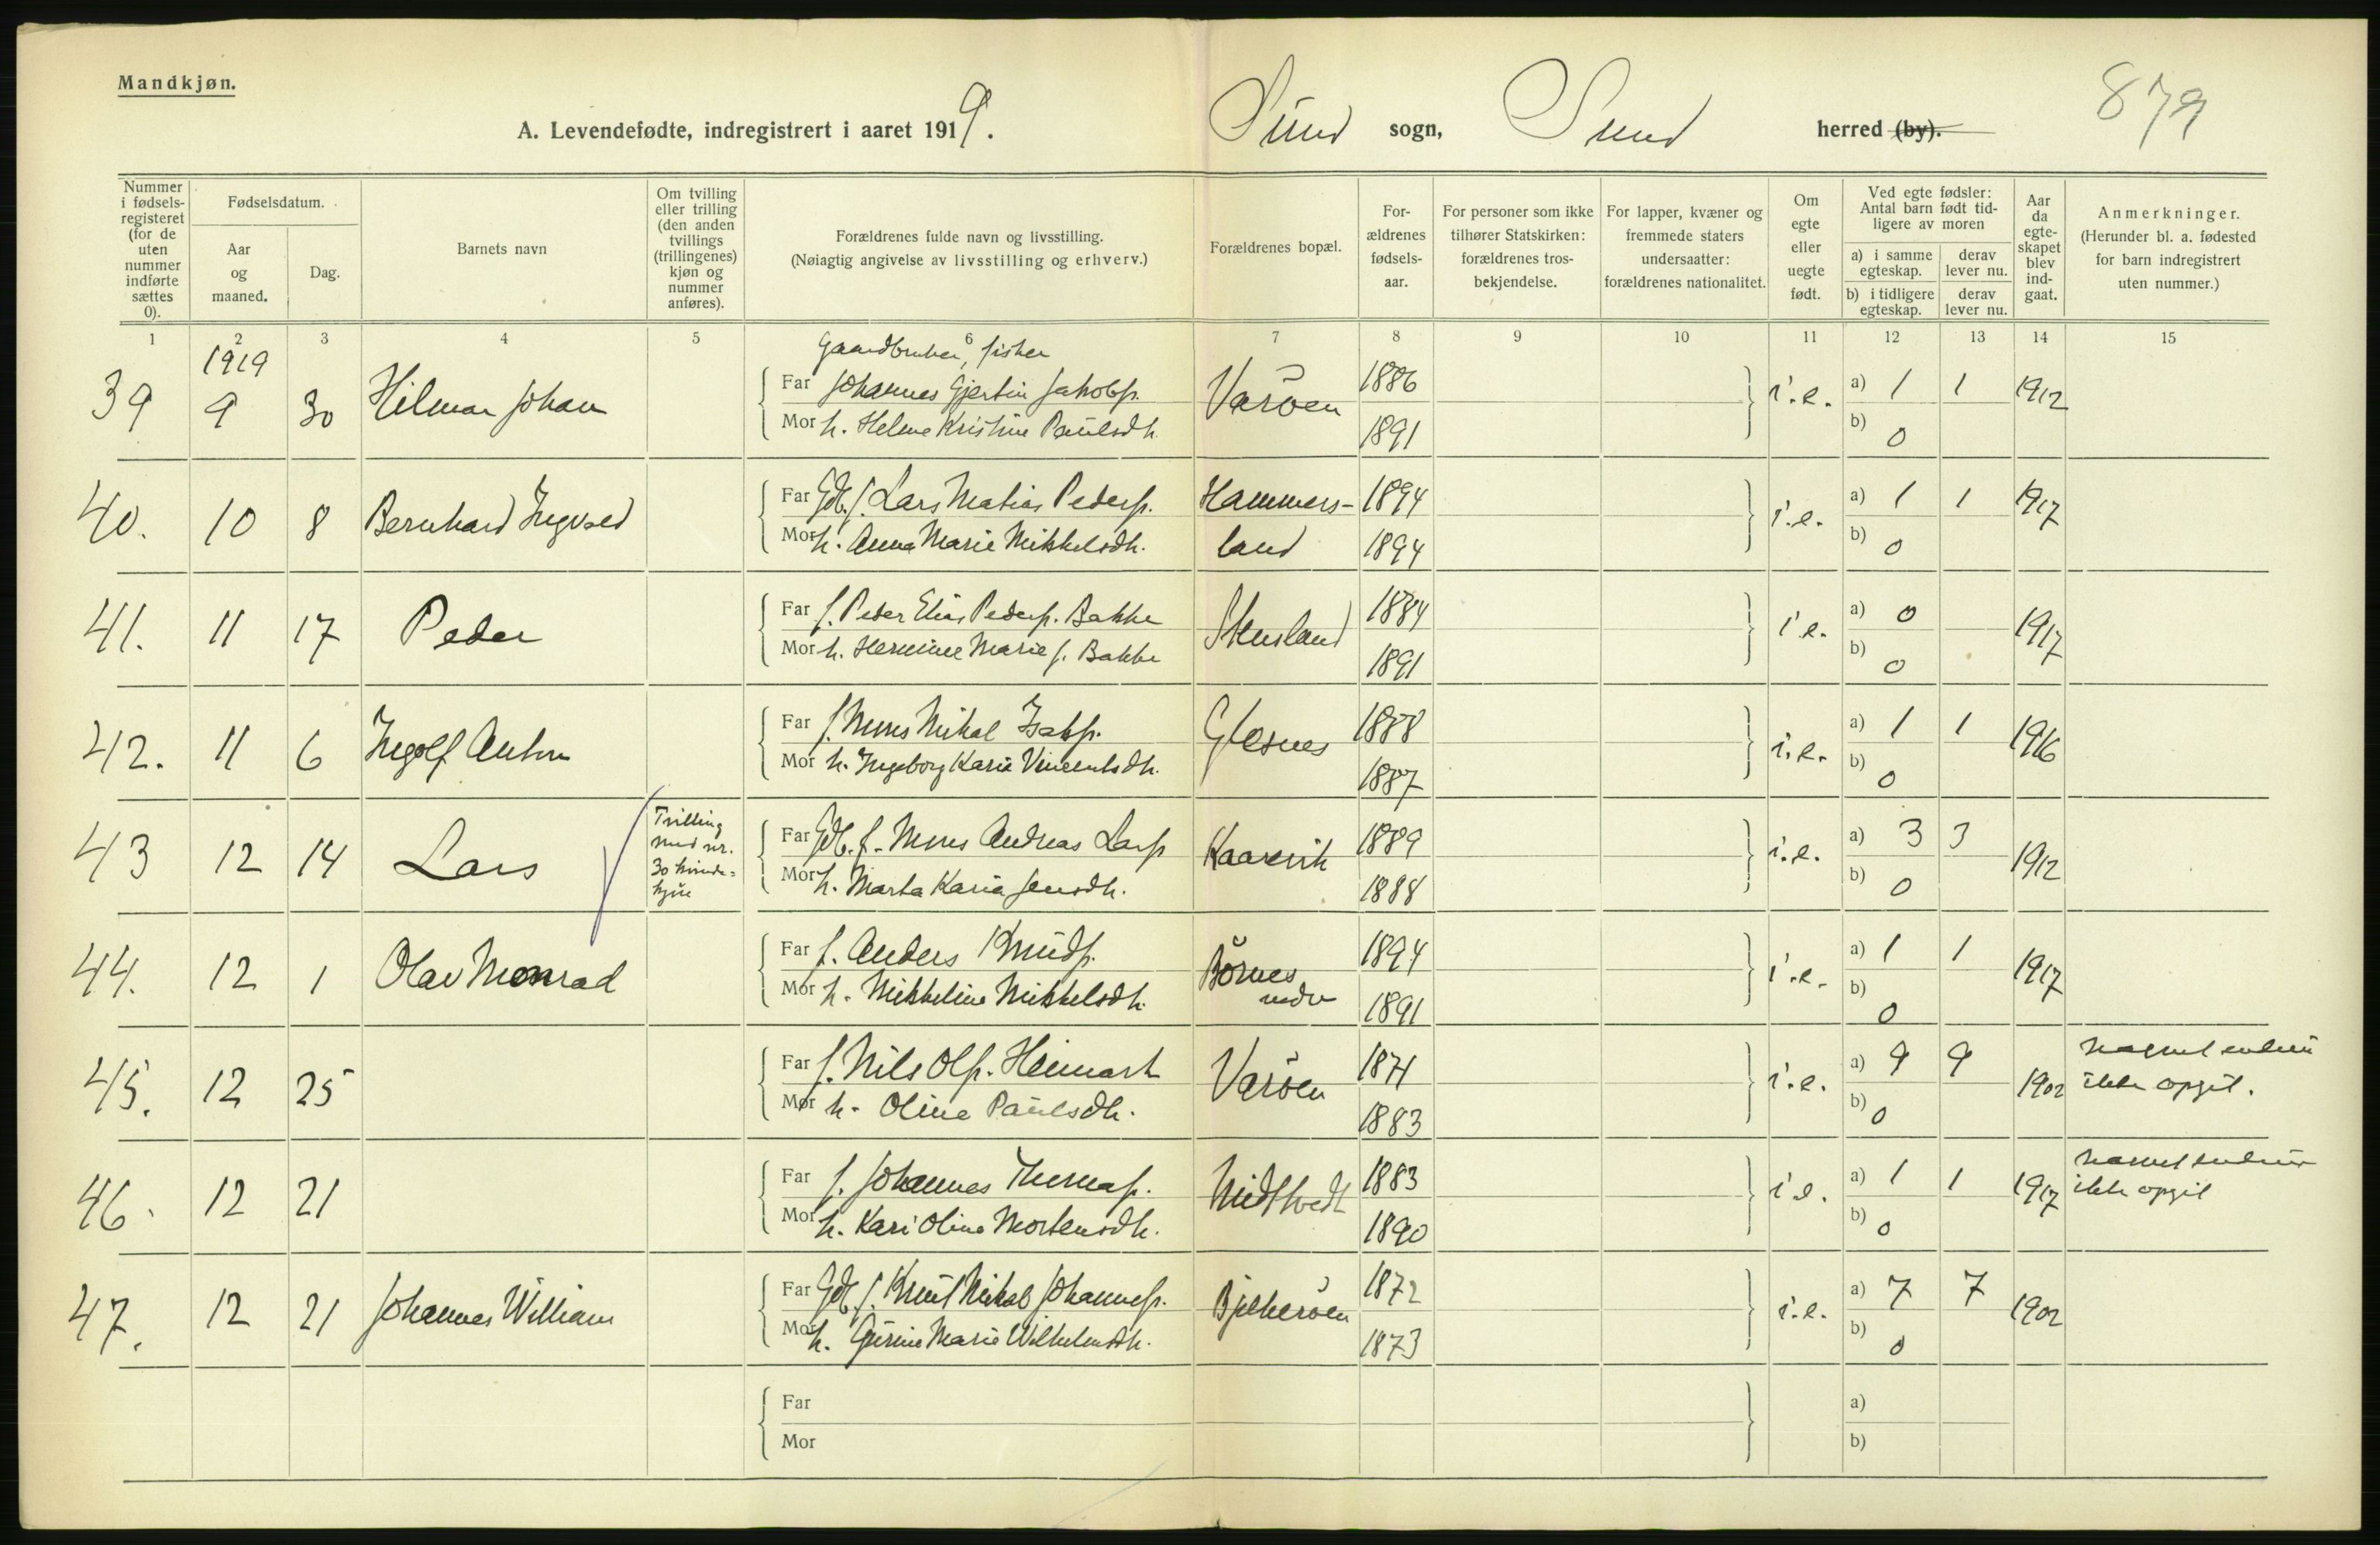 Mandkjøn.
A. Levendefødte, indregistrert i aaret 1919.
Sund sogn, Sund herred (by).
879
Nummer i fødsels-registeret (for de uten nummer indførte sættes 0).
Fødselsdatum.
Aar og maaned.
Dag.
Barnets navn
Om tvilling eller trilling (den anden tvillings (trillingenes) kjøn og nummer anføres).
Forældrenes fulde navn og livsstilling.
(Nøiagtig angivelse av livsstilling og erhverv.)
Forældrenes bopæl.
For-ældrenes fødsels-aar.
For personer som ikke tilhører Statskirken: forældrenes tros-bekjendelse.
For lapper, kvæner og fremmede staters undersaatter: forældrenes nationalitet.
Om egte eller uegte født.
Ved egte fødsler: Antal barn født tid-ligere av moren
a) i samme egteskap.
derav lever nu.
b) i tidligere egteskap.
derav lever nu.
Aar da egte-skapet blev ind-gaat.
Anmerkninger.
(Herunder bl. a. fødested for barn indregistrert uten nummer.)
1 2 3 4 5 6 7 8 9 10 11 12 13 14 15
1919
Gaardbruker, fisker
39 9 30 Hilmar Johan Far Johannes Gjertin Jakobs. Varöen 1886 i.e. a) 1 1 1912
Mor h. Helene Kristine Paulsdh. 1891 b) 0
40. 10 8 Bernhard Ingvald Far Gdb. f. Lars Matias Peders. Hammers- 1894 i.e. a) 1 1 1917
Mor h. Anna Marie Mikkelsdh. land 1894 b) 0
41. 11 17 Peder Far f. Peder Elias Peders. Bakke 1884 i.e. a) 0 1917
Mor h. Hermine Marie f. Bakke 1891 b) 0
42. 11 6 Ingolf Anton Far f. Mons Nikal Isaks. Glesnes 1888 i.e. a) 1 1 1916
Mor h. Ingeborg Karie Vincentsdh. 1887 b) 0
43 12 14 Lars Tvilling med nr. 30 kvinde-kjøn Far Gdb. f. Mons Andreas Lars. Kaarevik 1889 i.e. a) 3 3 1912
Mor h. Marta Karia Jensdh. 1888 b) 0
44. 12 1 Olav Monrad Far f. Anders Knuds. Börnes nedre 1894 i.e. a) 1 1 1917
Mor h. Mikkeline Mikkelsdh. 1891 b) 0
45. 12 25 Far f. Nils Ols. Heimark Varöen 1871 i.e. a) 9 9 1902 Navnet endnu ikke opgit.
Mor h. Oline Paulsdh. 1883 b) 0
46. 12 21 Far f. Johannes Thomas. Midttvedt 1883 i.e. a) 1 1 1917 Navnet endnu ikke opgit
Mor h. Kari Olina Mortensdh. 1890 b) 0
47. 12 21 Johannes William Far Gdb. f. Knut Nikal Johannes. Bjelkeröen 1872 i.e. a) 7 7 1902
Mor h. Gurine Marie Wilhelmsdh. 1873 b) 0
Far a)
Mor b)